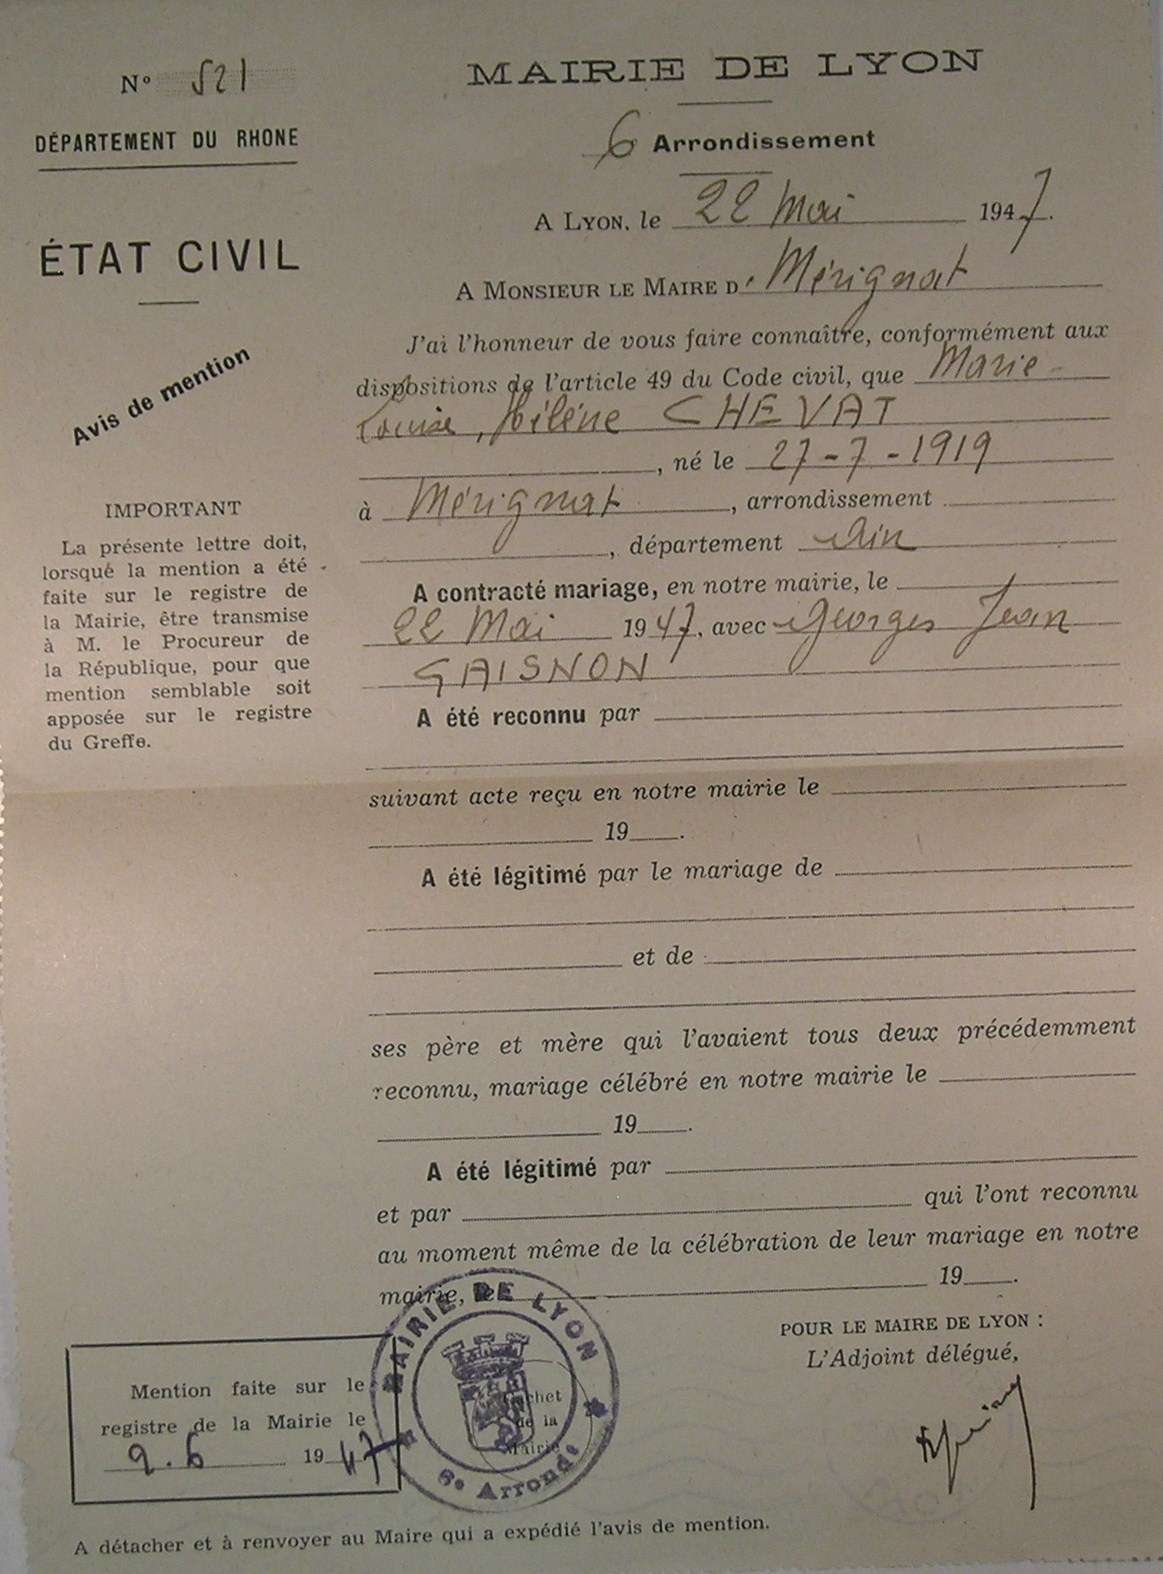 N° 521
DÉPARTEMENT DU RHONE
ÉTAT CIVIL
Avis de mention
IMPORTANT
La présente lettre doit,
lorsque la mention a été
faite sur le registre de
la Mairie, être transmise
à M. le Procureur de
la République, pour que
mention semblable soit
apposée sur le registre
du Greffe.
MAIRIE DE LYON
6 Arrondissement
A LYON, le 22 Mai 1947.
A MONSIEUR LE MAIRE D' Mérignat
J'ai l'honneur de vous faire connaître, conformément aux
dispositions de l'article 49 du Code civil, que Marie
Louise, Hélène CHEVAT
, né le 27-7-1919
à Mérignat, arrondissement
, département Ain
A contracté mariage, en notre mairie, le
22 Mai 1947, avec Georges Jean
GAISNON
A été reconnu par
suivant acte reçu en notre mairie le
19 .
A été légitimé par le mariage de
et de
ses père et mère qui l'avaient tous deux précédemment
reconnu, mariage célébré en notre mairie le
19 .
A été légitimé par
et par qui l'ont reconnu
au moment même de la célébration de leur mariage en notre
mairie, le 19 .
POUR LE MAIRE DE LYON :
L'Adjoint délégué,
MAIRIE DE LYON
6e Arrondt
Cachet
de la
Mairie
Mention faite sur le
registre de la Mairie le
2.6 1947
A détacher et à renvoyer au Maire qui a expédié l'avis de mention.